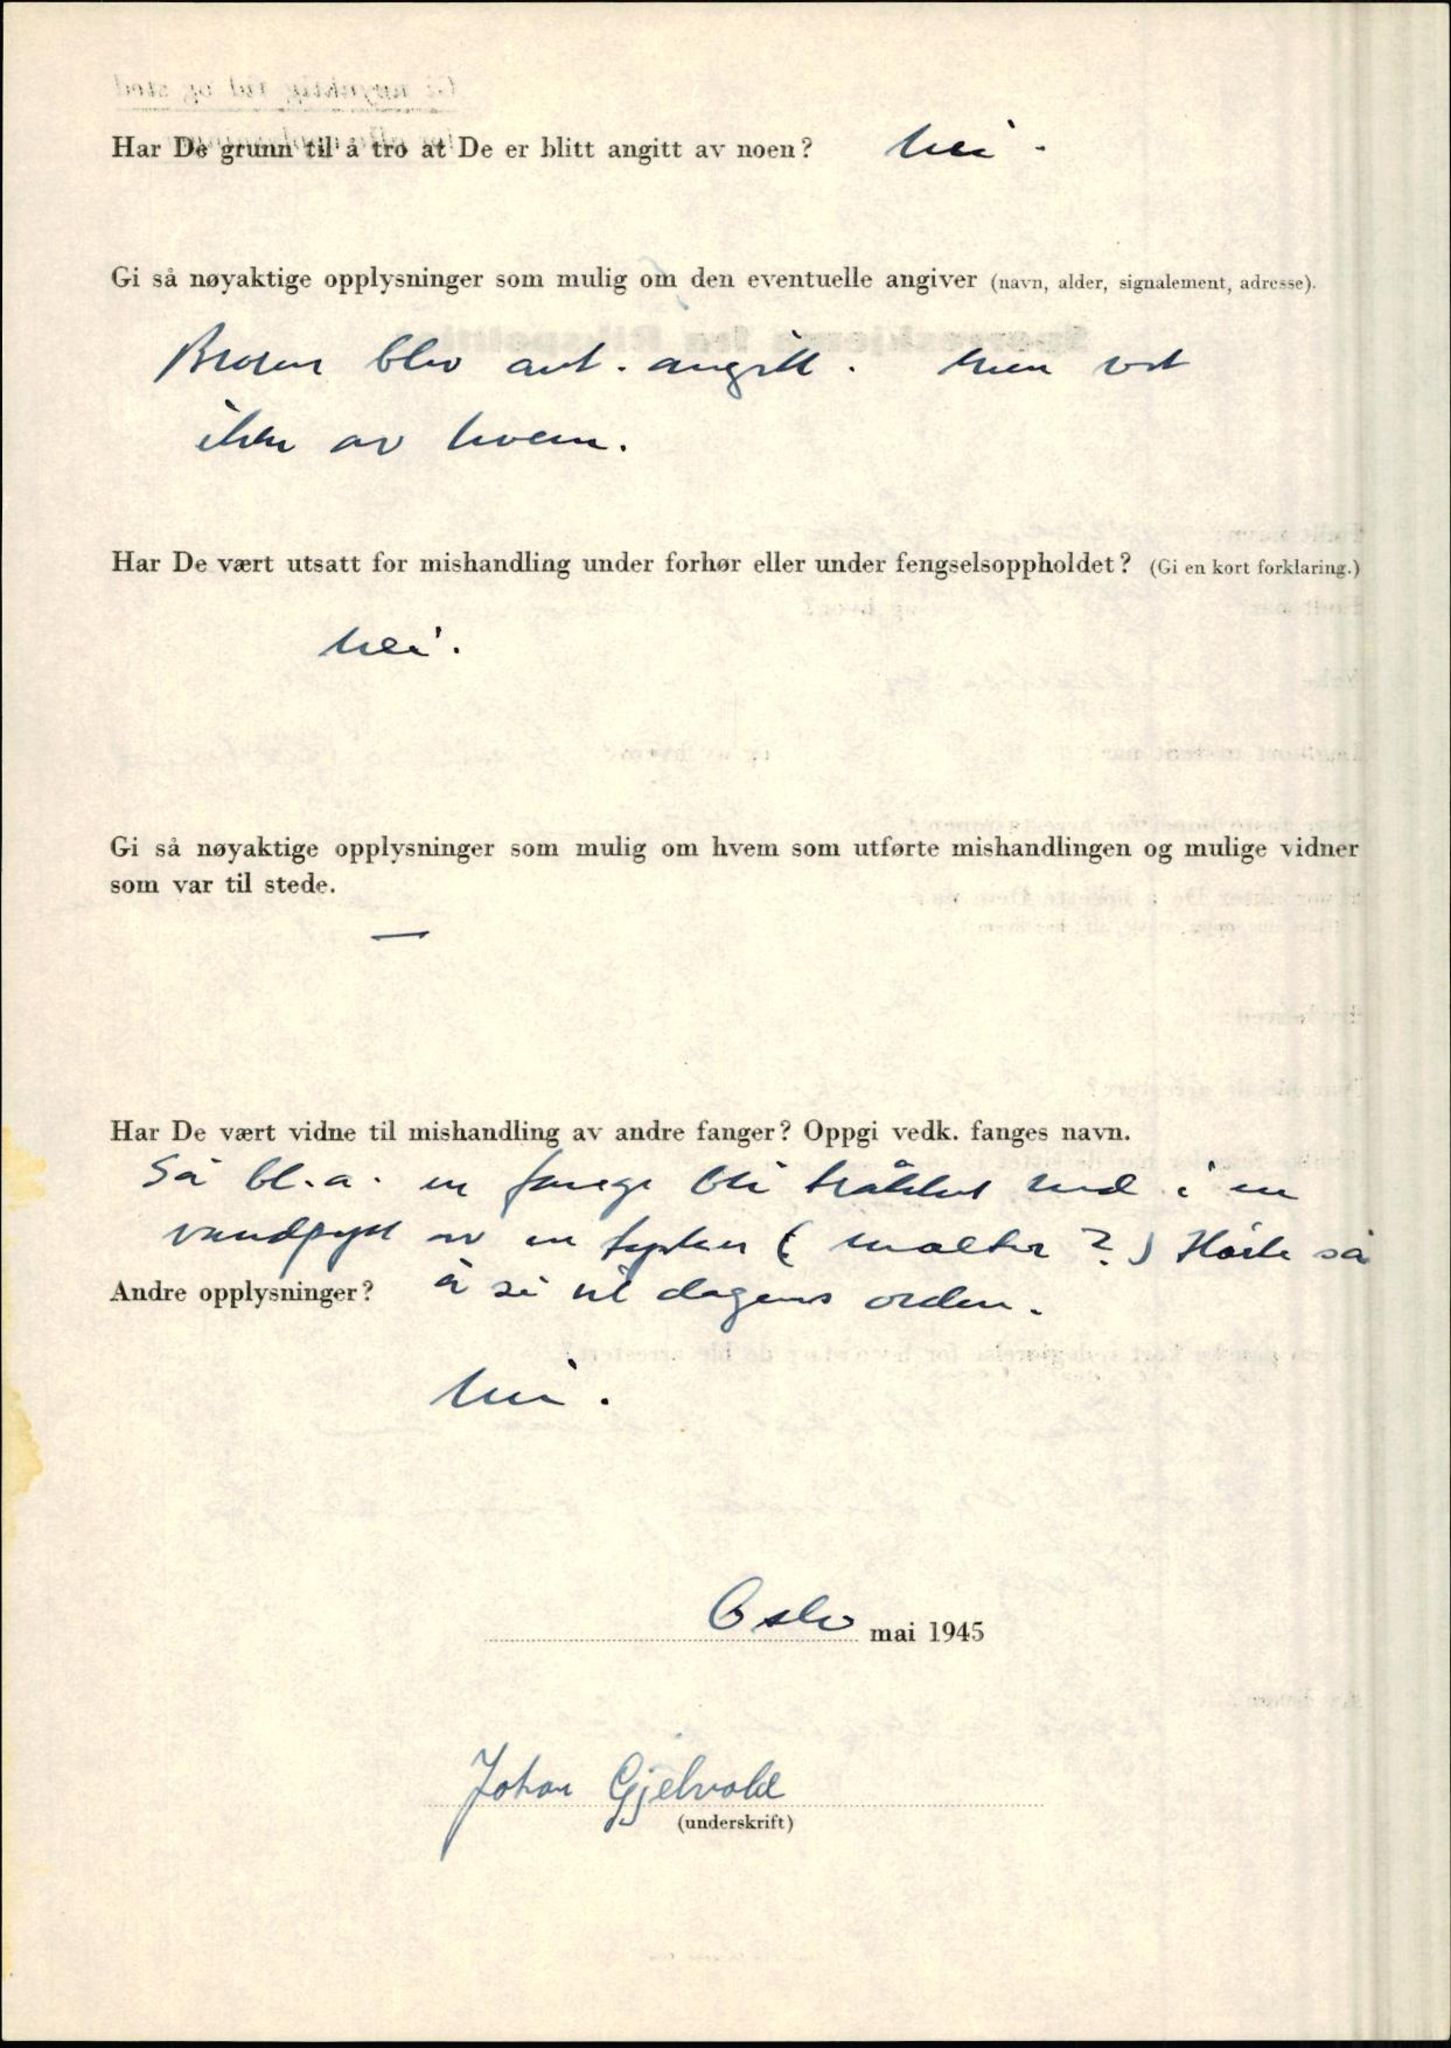 Har De grunn til å tro at De er blitt angitt av noen? Nei.
Gi så nøyaktige opplysninger som mulig om den eventuelle angiver (navn, alder, signalement, adresse).
Broren blev ant. angitt. Men vet
ikke av hvem.
Har De vært utsatt for mishandling under forhør eller under fengselsoppholdet? (Gi en kort forklaring.)
Nei.
Gi så nøyaktige opplysninger som mulig om hvem som utførte mishandlingen og mulige vidner
som var til stede.
—
Har De vært vidne til mishandling av andre fanger? Oppgi vedk. fanges navn.
Så bl.a. en fange bli tråkket ned i en
vandpytt av en tysker (Walter?) Hørte så
Andre opplysninger? å si til dagens orden.
Nei.
Oslo mai 1945
Johan Gjelvold
(underskrift)